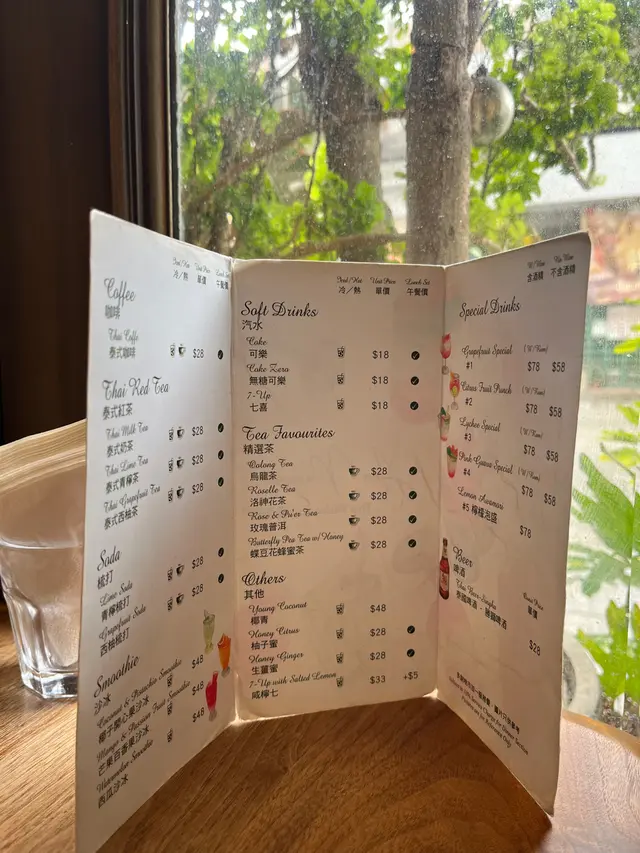 Coffee
咖啡
Iced/Hot Unit Price Lunch Set
冷／熱 單價 午餐價
Thai Coffe
泰式咖啡 $28
Thai Red Tea
泰式紅茶
Thai Milk Tea
泰式奶茶 $28
Thai Lime Tea
泰式青檸茶 $28
Thai Grapefruit Tea
泰式西柚茶 $28
Soda
梳打
Lime Soda
青檸梳打 $28
Grapefruit Soda
西柚梳打 $28
Smoothie
沙冰
Coconut & Pistachio Smoothie
椰子開心果沙冰 $48
Mango & Passion Fruit Smoothie
芒果百香果沙冰 $48
Watermelon Smoothie
西瓜沙冰 $48
Iced/Hot Unit Price Lunch Set
冷／熱 單價 午餐價
Soft Drinks
汽水
Coke
可樂 $18
Coke Zero
無糖可樂 $18
7-Up
七喜 $18
Tea Favourites
精選茶
Oolong Tea
烏龍茶 $28
Roselle Tea
洛神花茶 $28
Rose & Pu'er Tea
玫瑰普洱 $28
Butterfly Pea Tea w/Honey
蝶豆花蜂蜜茶 $28
Others
其他
Young Coconut
椰青 $48
Honey Citrus
柚子蜜 $28
Honey Ginger
生薑蜜 $28
7-Up with Salted Lemon
咸檸七 $33 +$5
含酒精 不含酒精
Special Drinks
Grapefruit Special (W/Rum)
#1 $78 $58
Citrus Fruit Punch (W/Rum)
#2 $78 $58
Lychee Special (W/Rum)
#3 $78 $58
Pink Guava Special (W/Rum)
#4 $78 $58
Lemon
#5 檸檬泡盛 $78
Beer
啤酒
Unit Price
單價
泰國啤酒 - $28